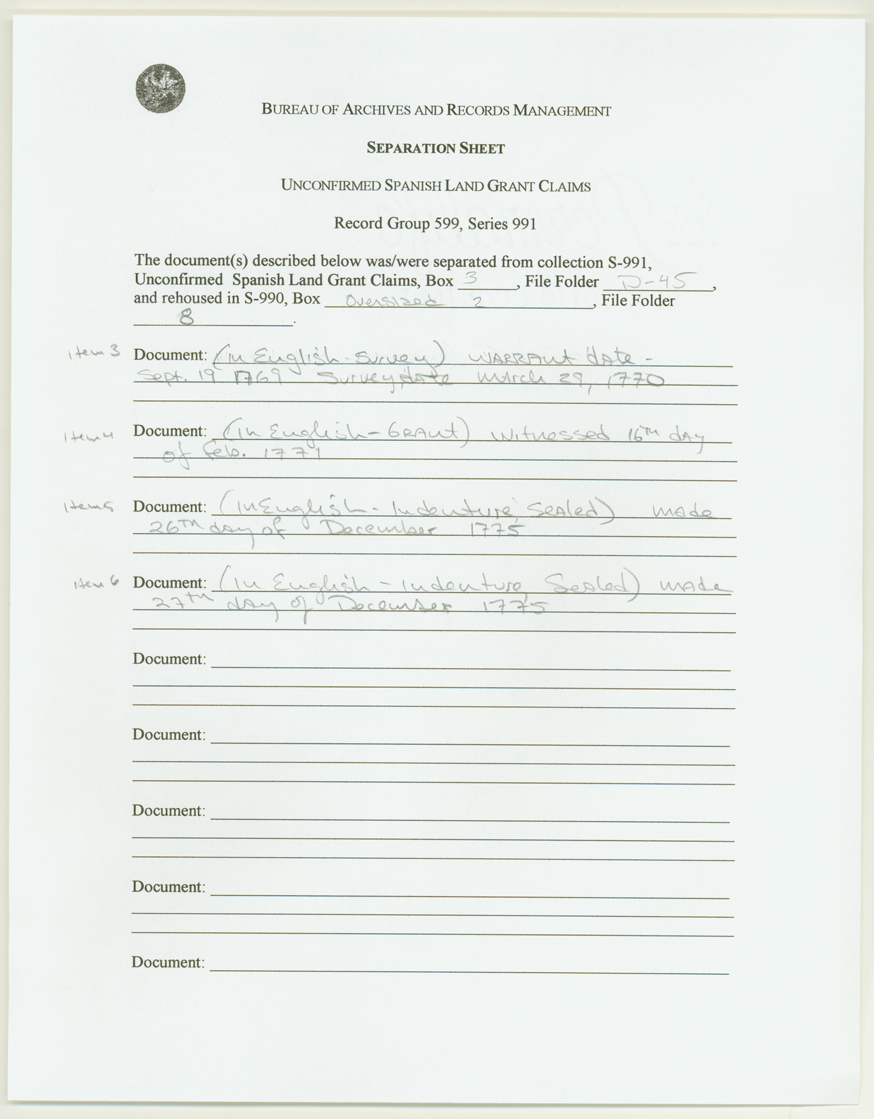 BUREAU OF ARCHIVES AND RECORDS MANAGEMENT
SEPARATION SHEET
UNCONFIRMED SPANISH LAND GRANT CLAIMS
Record Group 599, Series 991
The document(s) described below was/were separated from collection S-991,
Unconfirmed Spanish Land Grant Claims, Box 3, File Folder D-45,
and rehoused in S-990, Box Oversized 2, File Folder
8.
Item 3 Document: (In English-Survey) WARRANT date -
Sept. 19 1769 Survey date March 29, 1770
Item 4 Document: (In English-GRANT) Witnessed 16TH day
of Feb. 1771
Item 5 Document: (In English-Indenture, Sealed) made
26TH day of December 1775
Item 6 Document: (In English-Indenture, Sealed) made
27th day of December 1775
Document:
Document:
Document:
Document:
Document: